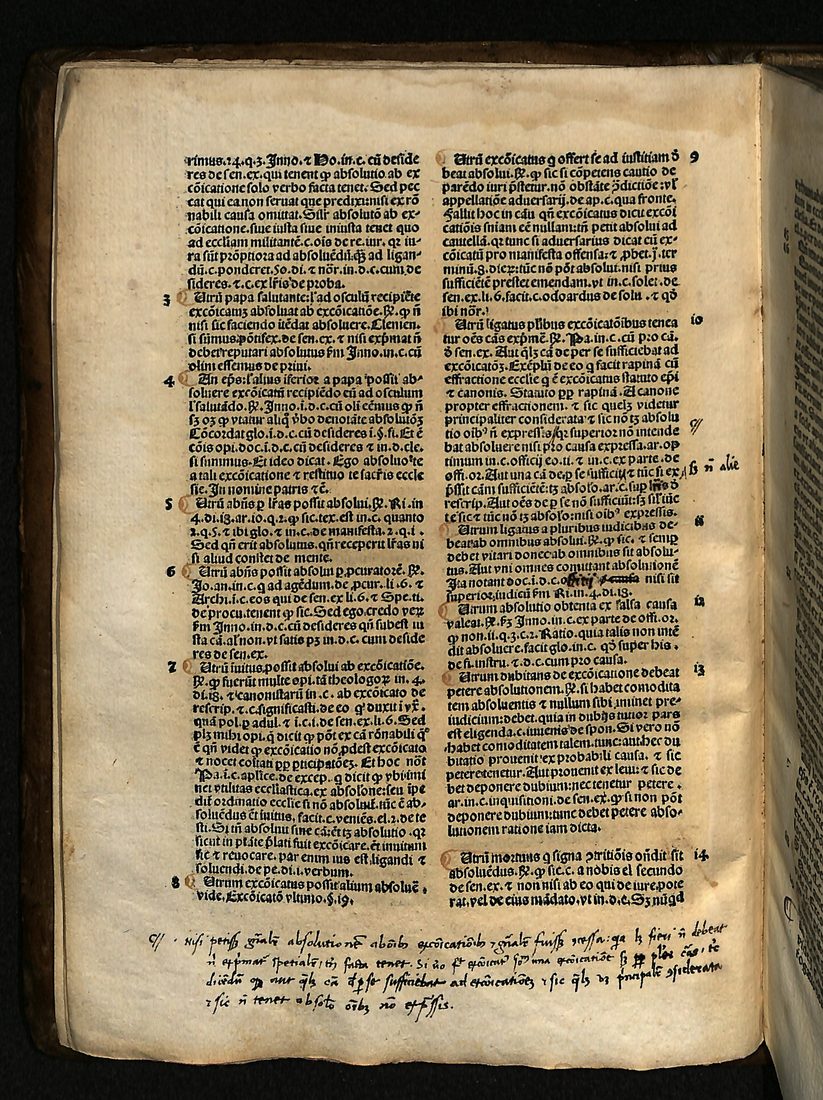 rimus.24.q.3. Inno. ⁊ Ho. in. c. cū deside
res de sen. ex. qui tenent ꝙ absolutio ab ex
cōicatione solo verbo facta tenet. Sed pec
cat qui ea non seruat que predixi: nisi ex rō
nabili causa omittat. Silr absolutō ab ex-
cōicatione. siue iusta siue iniusta tenet quo
ad eccliam militantē. c. oīs de re. iur. qꝛ iu-
ra sūt prōptiora ad absoluēdū. ꝙ̄ ad ligan-
dū. c. ponderet. 50. di. ⁊ nōr. in. d. c. cum de
sideres. ⁊. c. ex lr̄is de proba.
3 Utrū papa salutante: l' ad osculū recipiēte
excōicatus absoluat ab excōicatiōe. ℞. ꝙ n̄
nisi sic faciendo itēdat absoluere. Clemen.
si sūmus pōtifex. de sen. ex. ⁊ nisi exp̄mat n̄
debet reputari absolutus fm̄ Inno. in. c. cū
olim essemus de priui.
4 An ep̄s: l' alius iferior a papa possit ab-
soluere excōicatū recipiēdo eū ad osculum
l' salutādo. ℞. Inno. i. d. c. cū oli eēmus ꝙ n̄
sꝫ oꝫ ꝙ vtatur aliq̄ v̄bo denotāte absolutōꝫ
Cōcordat glo. i. d. c. cū desideres i. §. fi. Et ē
cōis opi. doc. i. d. c. cū desideres ⁊ in. d. cle.
si summus. Et ideo dicat. Ego absoluo te
a tali excōicatione ⁊ restituo te sacris eccle
sie. In nomine patris ⁊c̄.
5 Utrū abn̄s p̱ lr̄as possit absolui. ℞. Ri. in
4. di. 18. ar. 10. q. 2. ꝙ sic. tex. est in. c. quanto
2. q. 5. ⁊ ibi glo. ⁊ in. c. de manifesta. 2. q. 1.
Sed qn̄ erit absolutus. qn̄ receperit lr̄as ni
si aliud constet de mente.
6 Utrū abn̄s possit absolui p̱ p̱curatorē. ℞.
Jo. an. in. c. q̄ ad agēdum. de p̱cur. li. 6. ⁊
Archi. i. c. eos qui de sen. ex li. 6. ⁊ Spe. ti.
de procu. tenent ꝙ sic. Sed ego credo veꝝ
fm̄ Inno. in. d. c. cū desideres qn̄ sabest iu
sta cā. al' non. vt satis pꝫ in. d. c. cum deside
res de sen. ex.
7 Utrū īuitus possit absolui ab excōicatiōe.
℞. ꝙ fuerūt multe opi. tā theologoꝝ in. 4.
di. 18. ⁊ canonistarū in. c. ab excōicato de
rescrip. ⁊. c. significasti. de eo q̄ duxit i vx̄.
quā pol. p̱ adul. ⁊ i. c. i. de sen. ex. li. 6. Sed
plꝫ mihi opi. q̄ dicit ꝙ pōt ex cā rōnabili q̄
ē qn̄ videt ꝙ excōicatio nō p̱dest excōicato
⁊ nocet cōitati p̱p̱ p̱ticipatōeꝫ. Et hoc nōt
Pa. i. c. aplice. de excep. q̄ dicit ꝙ vbi imi
net vtilitas eccllastica. ex absolone: seu īpe
dit̄ ordinatio ecclie si nō absoluit̄. tūc ē ab-
soluēdus et īuitus, facit. c. veniēs. el. 2. de te
sti. Si tn̄ absoluu sine cā: et tꝫ absolutio. qꝛ
sicut in p̄tāte p̄lati fuit excōicare. et inuitum
sic ⁊ reuocare. par enim ius est ligandi ⁊
soluendi. de pe. di. i. verbum.
8 Utrum excōicatus possit alium absolue̅.
vide. Excōicatō vltimo. §. 19.
Utrū excōicatus q̄ offert se ad iustitiam d̄ 9
beat absolui. ℞. ꝙ sic si cōpetens cautio de
parēdo iuri p̄stetur. nō obstāte ꝯdictiōe: vl'
appellatiōe aduersarij. de ap. c. qua fronte.
Fallit hoc in cāu qn̄ excōicatus dicit excōi
catiōis sniam eē nullam: tn̄ petit absolui ad
cautellā. qꝛ tunc si aduersarius dicat eū ex-
cōicatū pro manifesta offensa: ⁊ ꝓbet. j. ter
minū. 8. dieꝝ: tūc nō pōt absolui. nisi prius
sufficiēte prestet emendam. vt in. c. solet. de
sen. ex. li. 6. facit. c. odoardus de solu. ⁊ q̄
ibi nōr.
Utrū ligatus plībus excōicatōibus tenea 10
tur oēs cās exp̄mē. ℞. Pa. in. c. cū pro cā.
d̄ sen. ex. Aut q̄lꝫ cā de per se sufficiebat ad
excōicatōꝫ. Exēplū de eo q̄ facit rapinā cū
effractione ecclie q̄ ē excōicatus statuto ep̄i
⁊ canonis. Statuto p̱p̱ rapinā. A canone
propter effractionem. ⁊ sic quelꝫ videtur
principaliter considerata ⁊ sic nō tꝫ absolu c//
tio oīb' n̄ expressis: qꝛ superior nō intende
bat absoluere nisi pro causa expressa. ar. op
timum in. c. officij eo. ti. ⁊ in. c. ex parte. de
offi. or. Aut una cā de p̱ se sufficit: ⁊ tūc si ex sꝫ n̄ alie
p̄ssit cām sufficiētē: tꝫ absolo. ar. c. sup d̄
rescrip. Aut oēs de p̱ se nō sufficiūt: sꝫ sil' iūc
te sic ⁊ tūc nō tꝫ absolo: nisi oīb' expressis.
Utrum ligatus a pluribus iudicibus de- 11
beat ab omnibus absolui. ℞. ꝙ sic. ⁊ semꝑ
debet vitari donec ab omnibus sit absolu-
tus. Aut vni omnes comittant absolutionē
Ita notant doc. i. d. c. officij nisi sit
superior, iudicū fm̄ Ri. in. 4. di. 18.
Utrum absolutio obtenta ex falsa causa 12
valeat. ℞. fꝫ Inno. in. c. ex parte de offi. or.
ꝙ non. ii. q. 3. c. 2. Ratio. quia talis non intē
dit absoluere. facit glo. in. c. q̄ super his.
de fi. instru. ⁊. d. c. cum pro causa.
Utrum dubitans de excōicatione debeat 13
petere absolutionem. ℞. si habet comodita
tem absoluentis ⁊ nullum sibi iminet pre-
iudicium: debet. quia in dubijs tutior pars
est eligenda. c. iuuenis de spon. Si vero nō
habet comoditatem talem. tunc: aut hec du
bitatio prouenit ex probabili causa. ⁊ sic
petere tenetur. Aut prouenit ex leui: ⁊ sic de
bet deponere dubium: nec tenetur petere.
ar. in. c. inquisitioni. de sen. ex. ꝙ si non pōt
deponere dubium: tunc debet petere abso-
lutionem ratione iam dicta.
Utrū mortuus q̄ signa ꝯtritiōis on̄dit sit 14
absoluēdus. ℞. ꝙ sic. c. a nobis el secundo
de sen. ex. ⁊ non nisi ab eo qui de iure pote
rat. vel de eius mādato. vt in. d. c. Sꝫ nūqd
c// . nisi petijss; gn̄alē absolutionē ab oībꝫ excōicationibꝫ ⁊ gn̄alē fuissꝫ ꝯcessa: qꝛ lꝫ fieri n̄ debeat
n̄ exp̄mat spetialē, tn̄ facta tenet.
⁊ sic n̄ tenet absolo oībꝫ nō exp̄ssis.